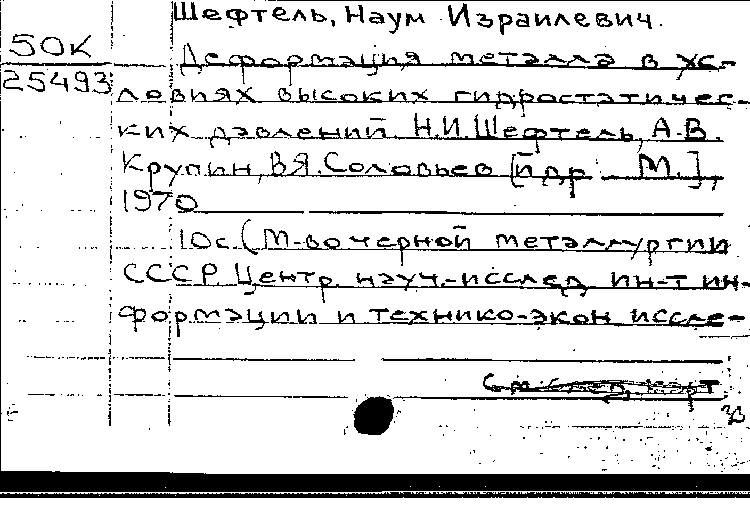 Шефтель, Наум Израилевич.
50К
25493
Деформация металла в ус-
ловиях высоких гидростатичес-
ких давлений. Н.И.Шефтель, А.В.
Крупин, В.Я.Соловьев [и др. М.],
1970
10с. (М-во черной металлургии
СССР. Центр. науч.-исслед. ин-т ин-
формации и технико-экон. иссле-
См. след. карт